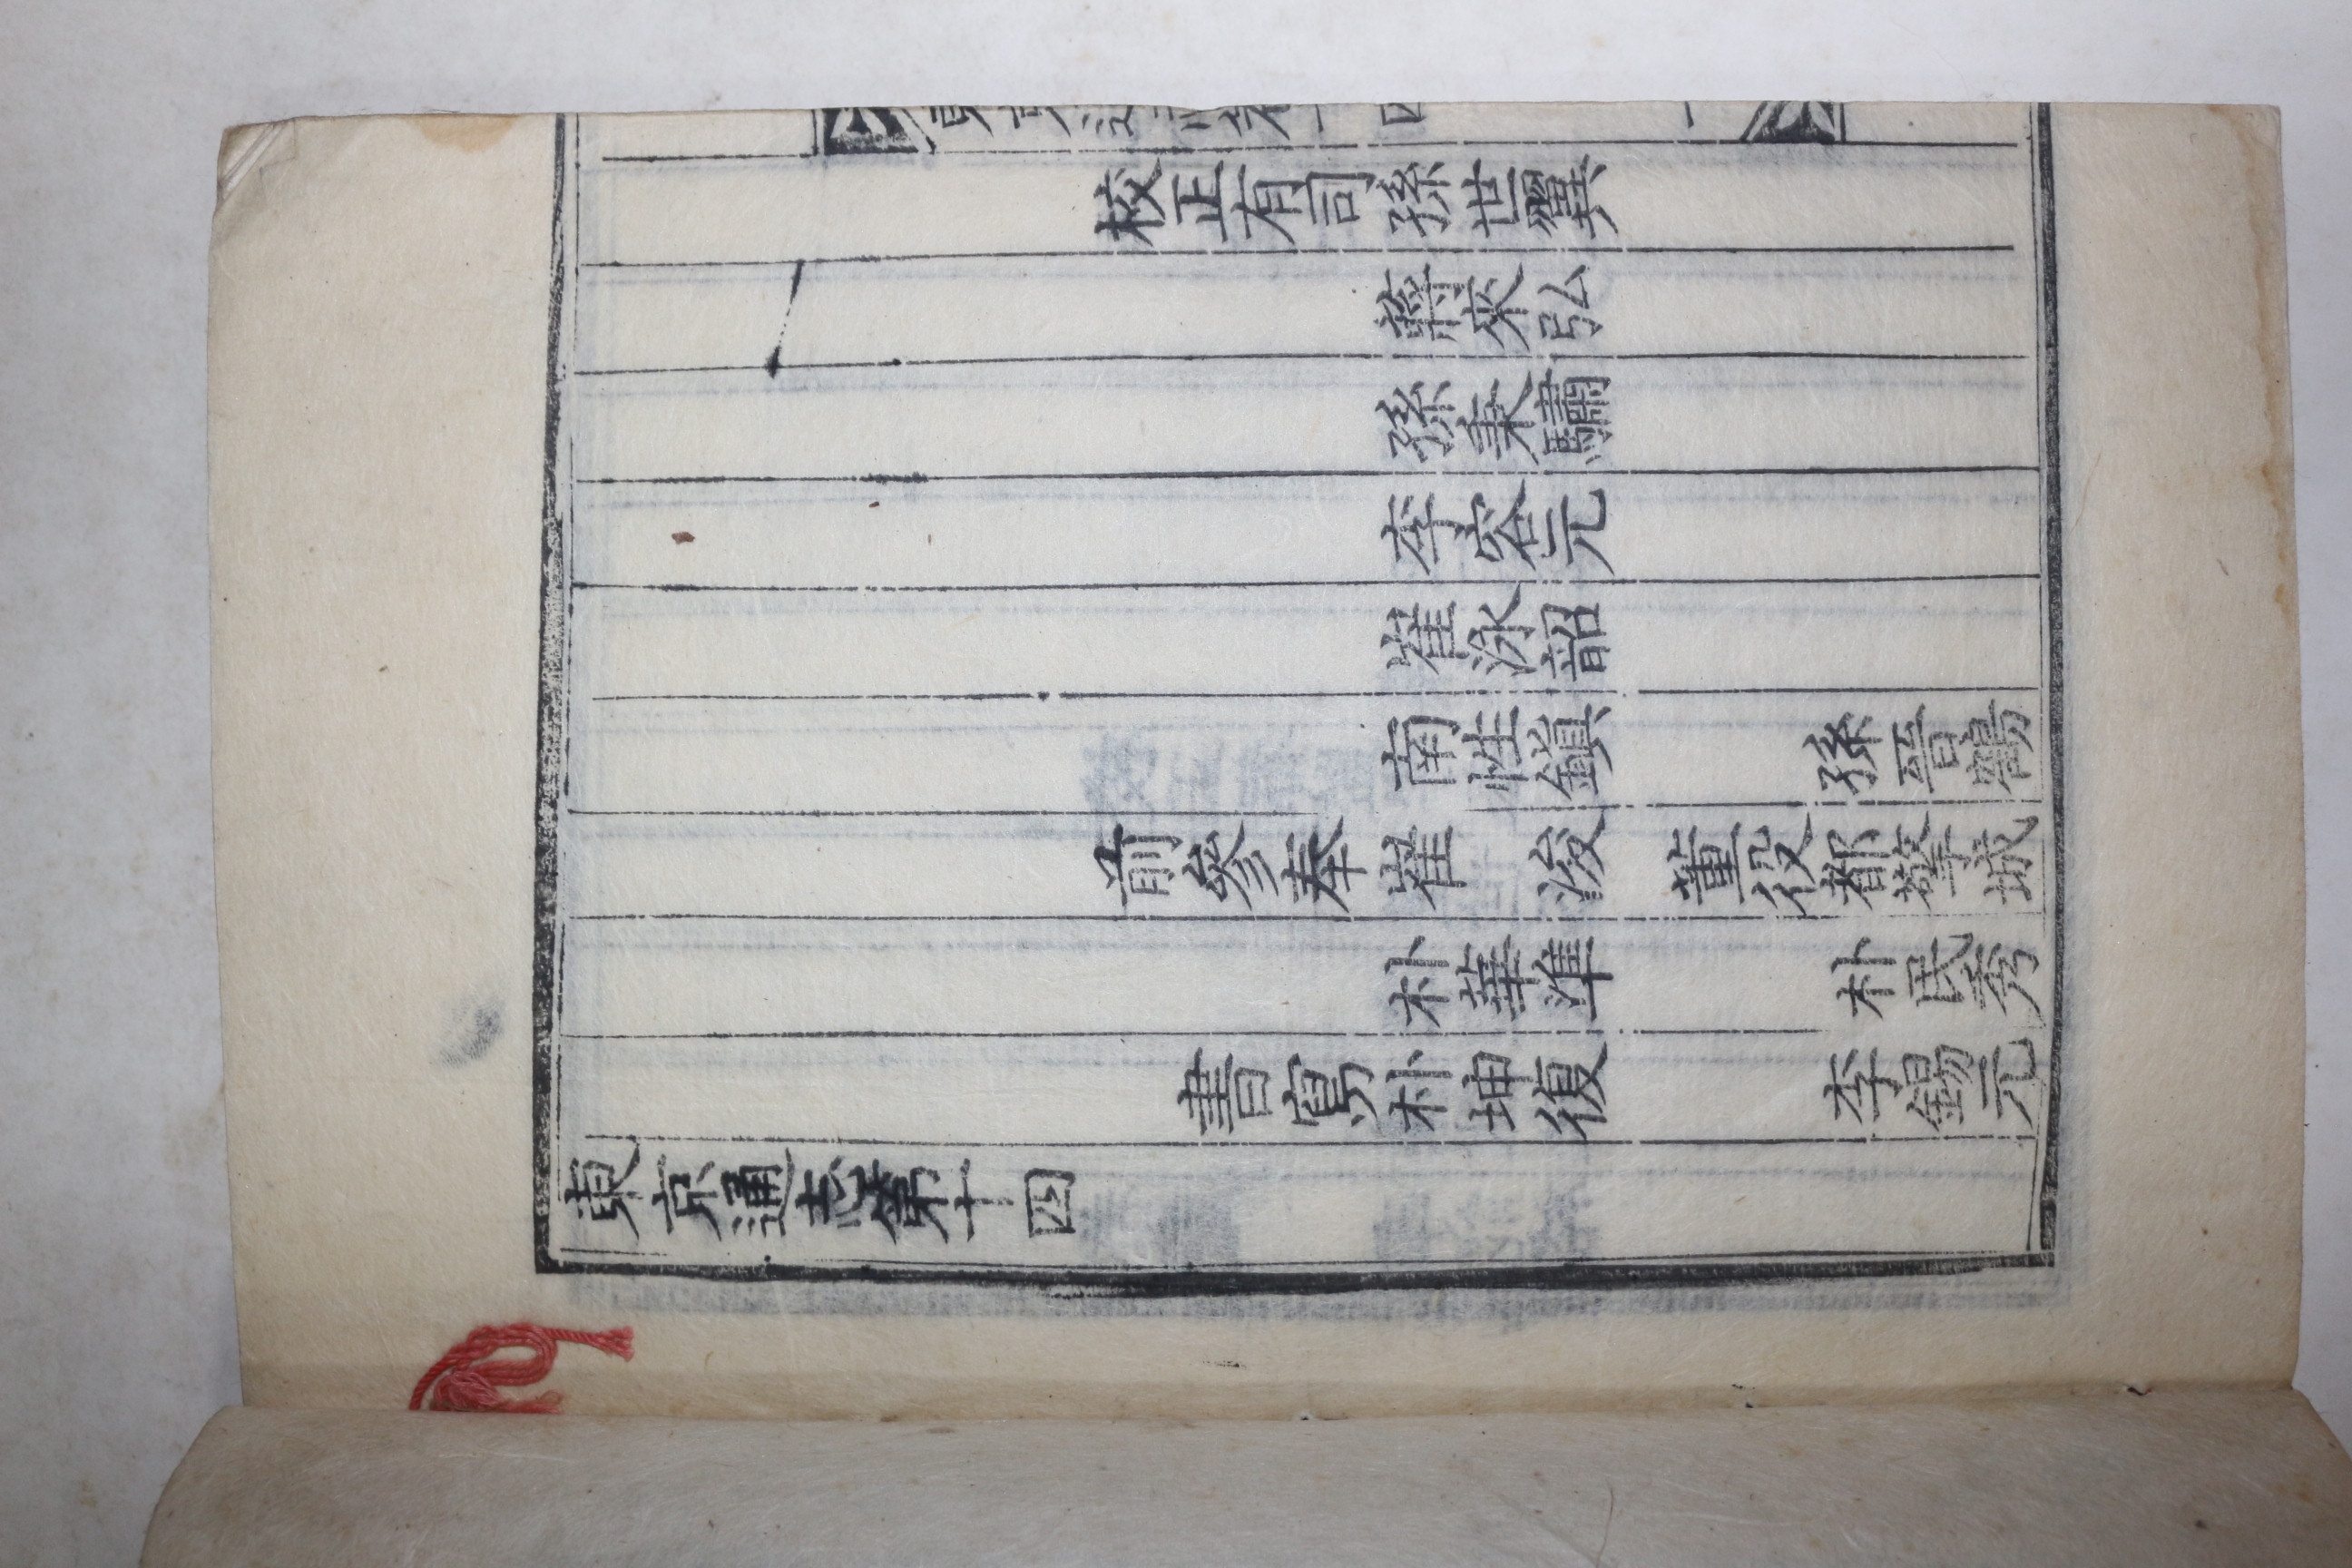 校正有司孫世翼
蔣來弘
孫秉驌
李容元
崔泳韶
南性鎭 孫晉鶴
前參奉崔 浚 董役都擎城
朴華準 朴民秀
書寫朴坤復 李錫元
東京通志第十四